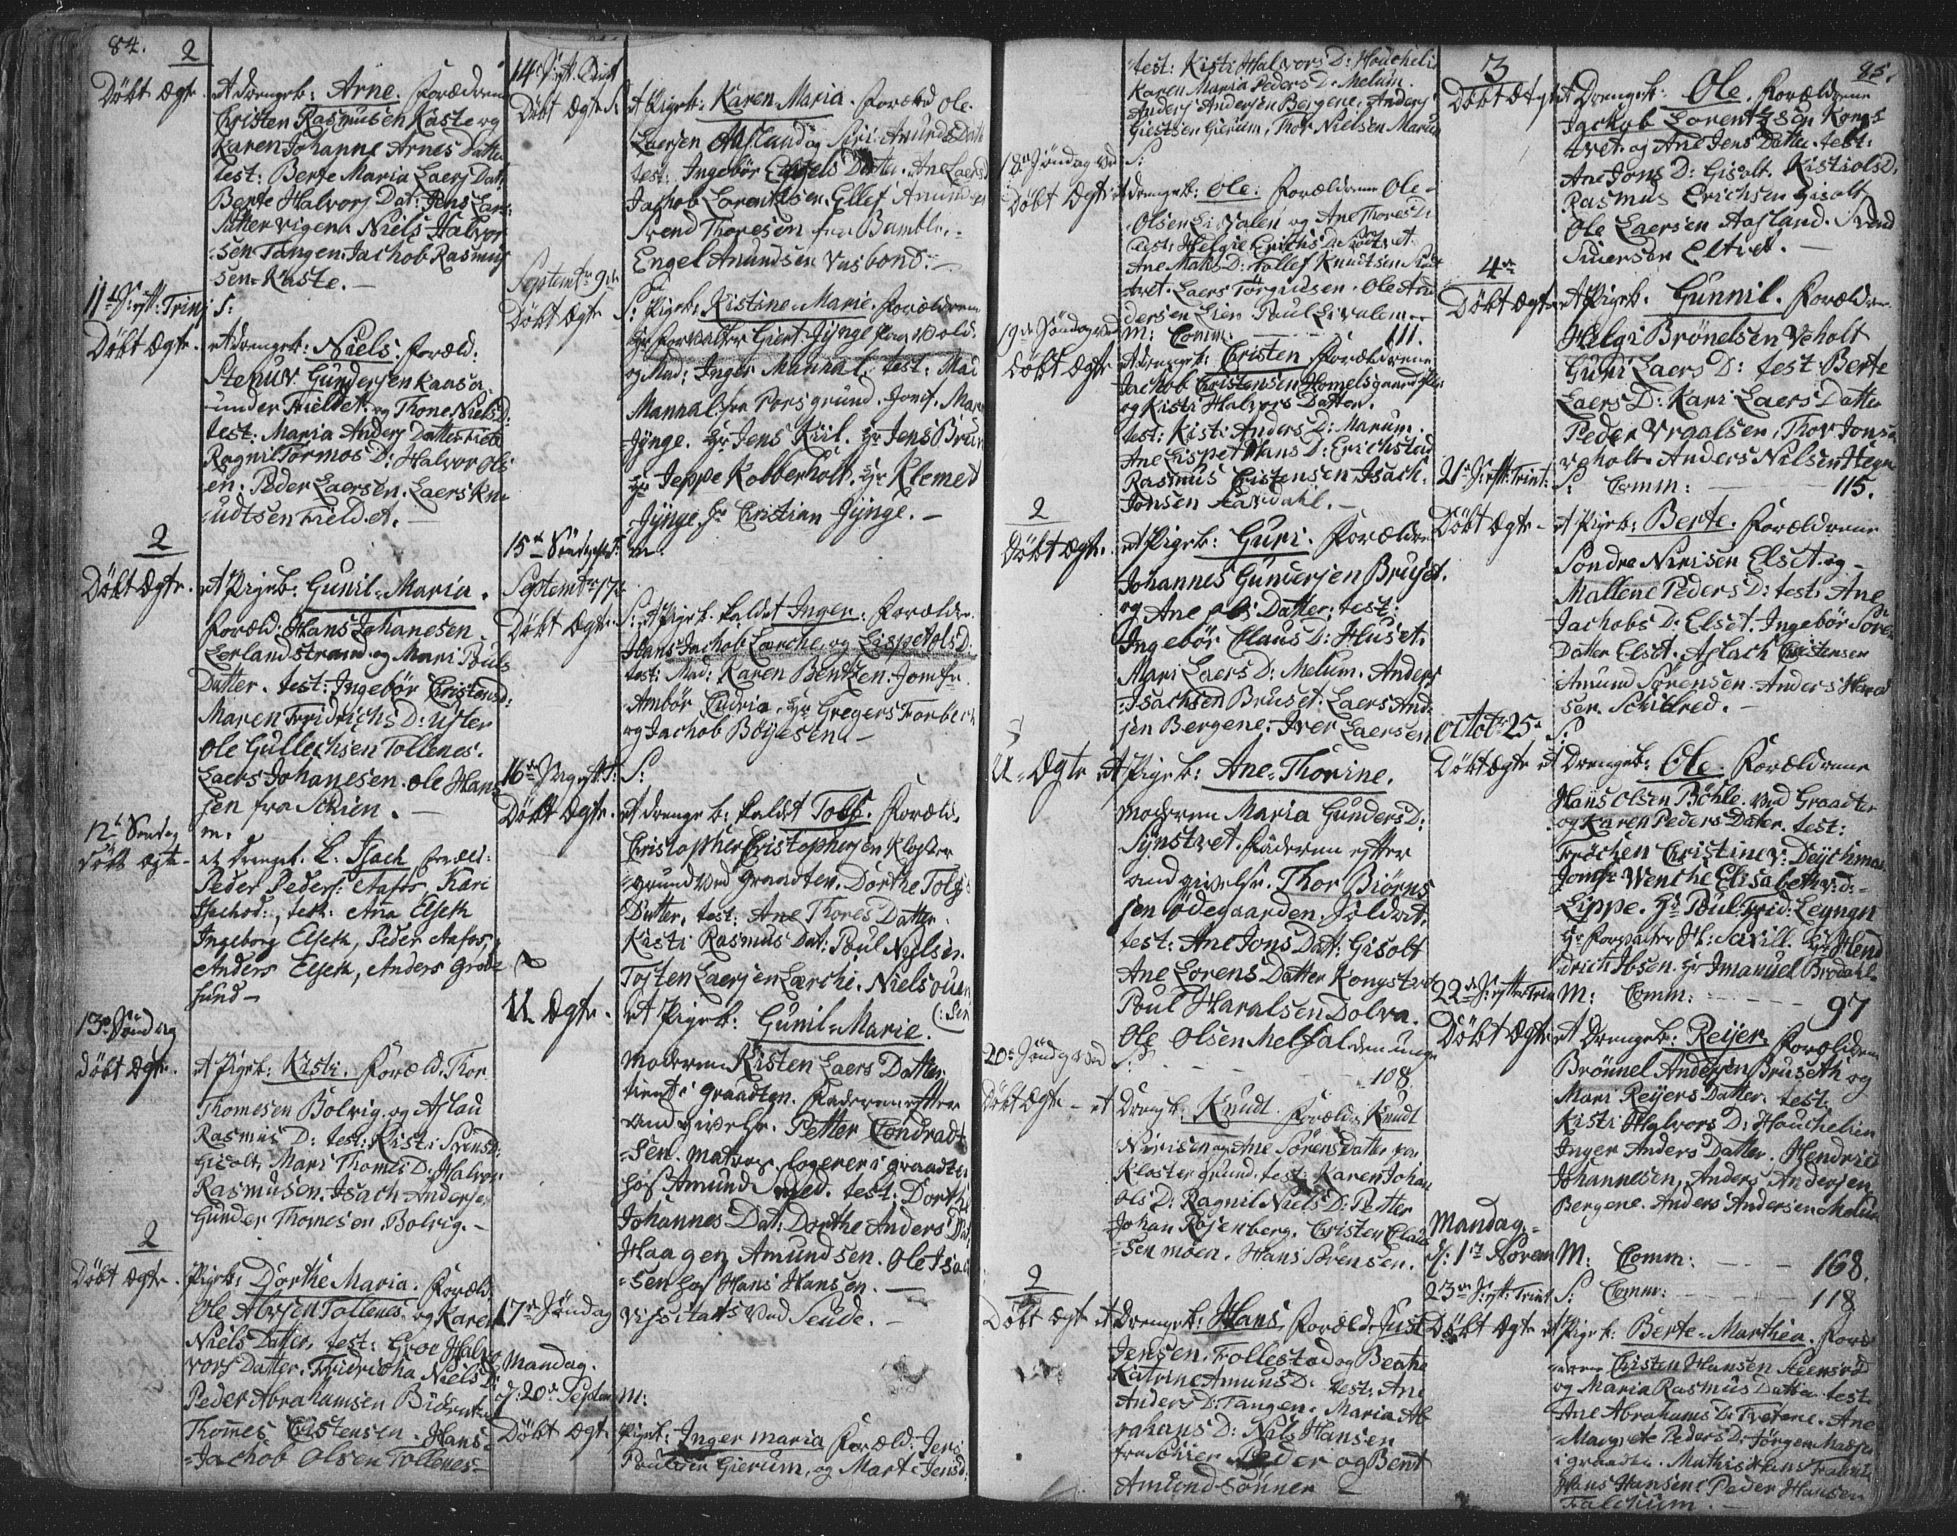 84.
2
Döbt Ægte. et drengeb: Arne. Forældrene
Cristen Rasmusen Kaste og
Karen Johanne Arnes Datter
test: Berte Maria Laers Datt
Berte Halvors Dat: Jens Lar
Niels Halvor
sen Tangen. Jachob Rasmus
sen Kaste. —
11te S: eft: Trin: S:
Döbt Ægte. et drengeb: Niels. Foræld:
Gundersen Kaasa
under Fieldet og Thone Niels D:
test: Maria Anders Datter
Ragnil Tormos D: Halvor Ols
en. Peder Laersen. Laers Kn
udtsen Field et. —
2
Döbt Ægte. et Pigeb: Gunil=Maria.
Foræld: Hans Johanesen
og Mari Pouls
Datter. test: Ingebör Cristens D:
Maren Fridrichs D:
Ole Gullechsen Tollenes.
Laers Johanesen. Ole Hans
sen fra Schien. —
12te Söndag m.
Döbt Ægte et Drengeb. k. Isach foræld:
Peder Peders: Aafos, Kari
test: Ana Elseth
Ingeborg Elseth, Peder Aafos,
Anders Elseth, Anders Grode
sund —
13de Söndag
Döbt Ægte. et Pigeb: Kisti. Foræld: Thor
Thomesen Bolvig og Aslau
Rasmus D: test: Kisti Svends D:
Gisolt, Mari Thomes D: Halvor
Rasmusen. Isach Andersen
Gunder Thomesen Bolvig. —
2
Döbt Ægte. Pigeb: Dorthe Maria. Foræld:
Ole Tollenes og Karen
Niels Datter, test: Groe Halv
vors Datter. Fridricha Niels D:
Peder Abrahamsen
Thomes Cristensen. Hans
Jachob Olsen Tollenes —
14de S: eft. Trinit
Döbt Ægte S: et Pigeb: Karen Maria. Foræld Ole
Laersen Aasland og Siri Amunds Datt
test: Ingebör Engels Datter. Ane Laers D
Jachob Lorentsen. Ellef Amundsen
Svend Thoresen fra Bamble.
Engel Amundsen Vasbond. —
Septembr 9de
Döbt Ægte S: Pigeb: Kistine Marie. Forældrene
Hr Forvalter Giert Jynge fra Vold
og Mad: Inger Mannal. test: Mad
Mannal fra Porsgrund. Jomf. Mar
Jynge. Hr Jens Kiil. Hr Jens Brun
Hr Jeppe Kobberholt. Hr Klemet
Jynge. Hr Cristian Jynge. —
15de Söndag eft T: m.
Septembr 17de
Döbt Ægte. S: et Pigeb kaldet Inger. Forældre
Hans Jachob Larche og Lispet Ols D:
test: Mad: Karen Bentzen. Jomfr.
Ambör Hr Gregers
og Jachob Böyesen. —
16de S: eft T: S:
Döbt Ægte. et drengeb: kaldt Tolf. Foræld.
Cristopher Cristophersen Kloster
grund ved Graadten. Dorthe Tolfs
Datter, test: Ane Thores Datter.
Kisti Rasmus Dat: Poul Nyelsen
Tosten Laersen Larche. Niels
U Ægte. et Pigeb: Gunil=Marie.
Moderen Kisten Laers Datter
tient i Graadten. Faderen efter
angivelse. Petter Condradt
sen. Matros. logerer i Graadten
hos Amund Smed. test: Dorthe
Johannes Dat: Dorthe Anders Dat
Haagen Amundsen. Ole Isac
sen hos Hans Hansen. —
17de Söndag Visitats ved Seude. —
Mandag.
d: 20de Septem M:
Döbt Ægte. Pigeb: Inger Maria Foræld: Jens
Poulsen Gierum, og Marte Jens D:
test: Kisti Halvors D: Houcheli
Karen Maria Peders D: Melum.
Anders Andersen Bergene. Anders
Giertsen Gierum, Thor Nielsen Marum
18de Söndag ved S:
Döbt Ægte et drengeb: Ole: Forældrene Ole
Olsen Livalen og Ane Thores D:
test: Helgie Erichs D:
Ane Mads D: Tollef Knudtsen
Laers Torgiusen. Ole An
dersen Lien Poul Livalen. —
19de Söndag ved M: Comm: — 111.
Döbt Ægte et drengeb: Cristen Forældrene
Jachob Cristensen Homelsgaard
og Kisti Halvors Datter.
test: Kisti Anders D: Marum.
Ane Lispet Hans D: Erichstad
Rasmus Cristensen. Isach.
Jonsen Aardahl. —
2
Döbt Ægte. et Pigeb: Guri. Forældre
Johannes Gundersen Bruset.
og Ane Ols Datter: test:
Ingebör Claus D: Huset.
Mari Laers D: Melum. Anders
Isachsen Bruset. Laers And
sen Bergene. Iver Laersen
U=Ægte et Pigeb: Ane=Thorine.
Moderen Maria Gunders D:
Synstvet. Faderen efter
angivelse. Thor Biörns
sen Ödegaarden
test: Ane Jons Dat: Gisolt
Ane Lorens Datter Kongstvet
Poul Haralsen Dolva.
Ole Olsen Melfald den unge
20de Söndag ved S: — 108.
Döbt Ægte — et Drengb: Knudt. Foræld: Knudt
Nirisen og Ane Sörens Datter fra
Klostergrund, test: Karen Johan
Ols D: Ragnil Niels D: Petter
Johan Rosenberg. Cristen Claus
sen Moen. Hans Sörensen.
2
Döbt Ægt et Drengeb: Hans. Foræld: Just
Jensen. Follestad og Beathe
Katrine Amuns D: test: Ane
Anders D: Tangen. Maria Ab
rahams D: Niels Hansen
fra Schien Peder og Bent
Amundsönner
85.
3
Döbt Ægte et Drengeb: Ole. Forældrene
Jachob Lorentzsen Kongs
tvet og Ane Jens Datter. test:
Ane Jons D: Gisolt. Kisti Ols D.
Rasmus Erichsen Gisolt
Ole Laersen Aasland. Svend
Siversen Eltvet. —
4de
Döbt Ægte et Pigeb. Gunnil. Foræld
Helgi Brönelsen Veholt
Guri Laers D: test: Berte
Laers D: Kari Laers Datter
Peder Vraalsen, Thor Jonsen
Veholt. Anders Nilsen
21de S: eft: Trint: S: Comm: — 115.
Döbt Ægte — et Pigeb: Berte. Forældrene
Sondre Nirisen Elset og
Mallene Peders D: test: Ane
Jachobs D: Elset. Ingebör Sören
Datter Elset. Aslach Cristensen
Amund Sörensen. Anders Harod
sen —
Octobr 25de S:
Döbt Ægte et Drengeb: Ole. Forældrene
Hans Olsen Böhle. ved Graadten
og Karen Peders Dater. test:
Fröchen Cristine v: Deychman
Jomfr Wenche Elisabeth v:d:
Lippe. Hr Poul Frid: Leyngn
Hr Forvalter H: Savill. Hr Hend
drich Ibsen. Hr Imanuel Brodahl
22de S: efter Trin M: Comm: — 97
Döbt Ægte et Drengeb: Reijer. Forældrene
Brönnel Andersen Bruseth og
Mari Reijers Datter. test:
Kisti Halvors D: Houchelien
Inger Anders Datter. Hendric
Johannesen, Anders Andersen
Bergene. Anders Andersen Melum
Mandag
d: 1te Novem M: Comm: — 168.
23de S: eft: Trint S: Comm: — 118
Döbt Ægte et Pigeb: Berte=Marthea. Foræl
Cristen Hansen
og Maria Rasmus Datter. test
Ane Abrahams D: Tvetene. Ane
Margrete Peders D: Jörgen Madsen
i Graadten. Mathis Hans
Hans Hansen. Peder Hansen
Falchum. —